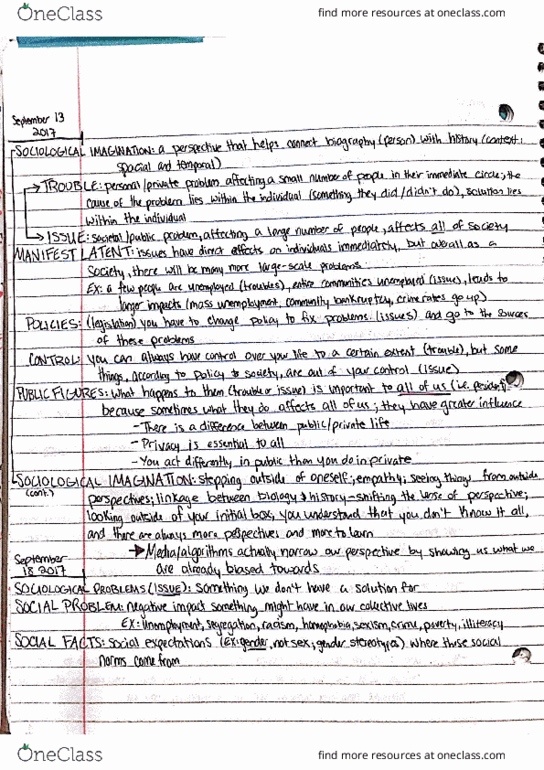 OneClass
find more resources at oneclass.com
September 13
2017
SOCIOLOGICAL IMAGINATION: a perspective that helps connect biography (person) with history (context:
spacial and temporal)
TROUBLE: personal/private problem affecting a small number of people in their immediate circle; the
cause of the problem lies within the individual (something they did/didn't do), solution lies
within the individual
ISSUE: societal/public problem, affecting a large number of people, affects all of society
MANIFEST LATENT: issues have direct effects on individuals immediately, but overall as a
society, there will be many more large-scale problems
EX: a few people are unemployed (troubles), entire communities unemployed (issues), leads to
larger impacts (mass unemployment, community bankruptcy, crime rates go up)
POLICIES: (legislation) you have to change policy to fix problems (issues) and go to the sources
of these problems
CONTROL: you can always have control over your life to a certain extent (trouble), but some
things, according to policy & society, are out of your control (issue)
PUBLIC FIGURES: what happens to them (trouble or issue) is important to all of us (i.e. president)
because sometimes what they do affects all of us; they have greater influence
- There is a difference between public/private life
- Privacy is essential to all
- You act differently in public than you do in private
SOCIOLOGICAL IMAGINATION: stepping outside of oneself; empathy; seeing things from outside
(cont.)
perspectives; linkage between biology & history - shifting the lense of perspective;
looking outside of your initial box, you understand that you don't know it all,
and there are always more perspectives and more to learn
Media/algorithms actually narrow our perspective by showing us what we
are already biased towards
September
18 2017
SOCIOLOGICAL PROBLEMS (ISSUE): something we don't have a solution for
SOCIAL PROBLEM: negative impact something might have in our collective lives
EX: unemployment, segregation, racism, homophobia, sexism, crime, poverty, illiteracy
SOCIAL FACTS: social expectations (EX: gender, not sex; gender stereotypes) where those social
norms come from
OneClass
find more resources at oneclass.com